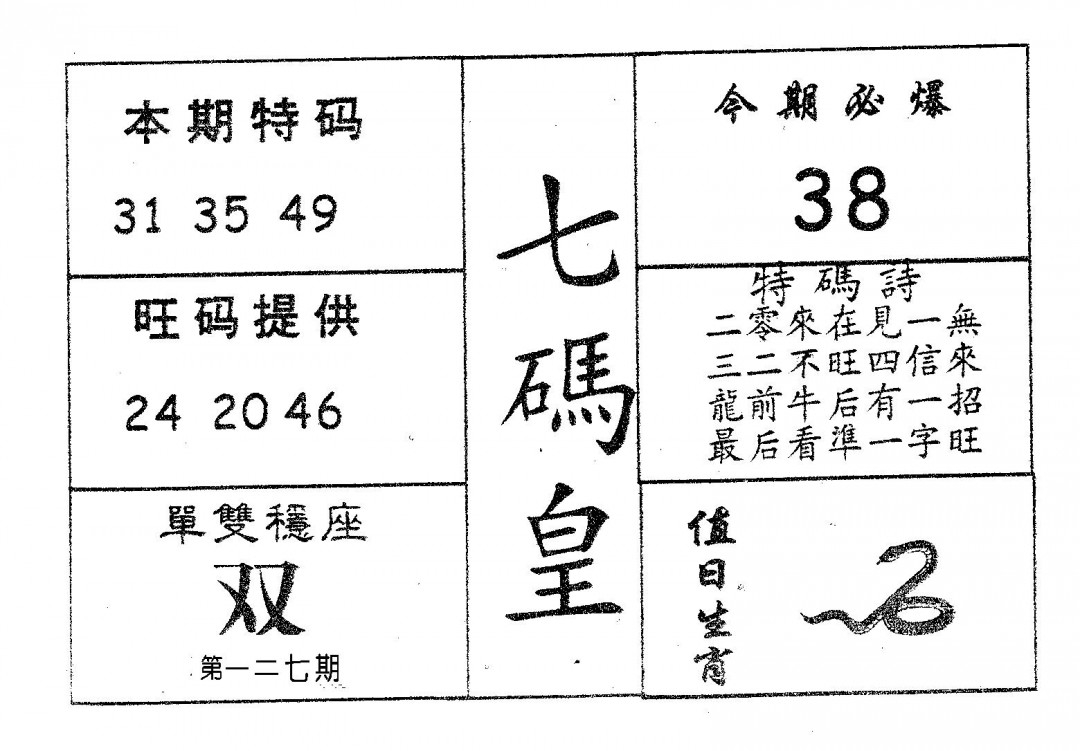 本期特码
31 35 49
旺码提供
24 20 46
單雙穩座
双
第一二七期
七碼皇
今期必爆
38
特碼詩
二零來在見一無
三二不旺四信來
龍前牛后有一招
最后看準一字旺
值日生肖